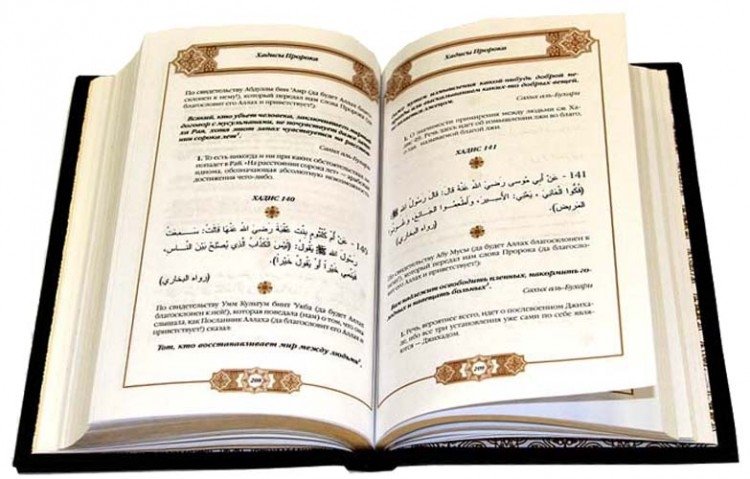 Хадисы Пророка
По свидетельству Абдуллы бин 'Амр (да будет Аллах
склонен к нему!), который передал нам слова Пророка (да
благословит его Аллах и приветствует!):
Всякий, кто убьет человека, заключившего мирный
договор с мусульманами, не почувствует даже запаха
Рая, хотя этот запах чувствуется на расстоя-
нии сорока лет¹.
Сахих аль-Бухари
1. То есть никогда и ни при каких обстоятельствах не
попадет в Рай. «На расстоянии сорока лет» — арабская
идиома, обозначающая абсолютную невозможность
достижения чего-либо.
ХАДИС 140
140 - عَنْ أُمِّ كُلْثُومٍ بِنْتِ عُقْبَةَ رَضِيَ اللهُ عَنْهَا قَالَتْ: سَمِعْتُ
رَسُولَ اللهِ ﷺ يَقُولُ: (لَيْسَ الْكَذَّابُ الَّذِي يُصْلِحُ بَيْنَ النَّاسِ،
فَيَنْمِي خَيْرًا أَوْ يَقُولُ خَيْرًا).
(رواه البخاري)
По свидетельству Умм Культум бинт 'Укба (да будет Аллах
благосклонен к ней!), которая поведала (нам) о том, что она
слышала, как Посланник Аллаха (да благословит его Аллах и
приветствует!) сказал:
Тот, кто восстанавливает мир между людьми¹,
208
Хадисы Пророка
путем измышления какой-нибудь доброй не-
правды или высказыванием каких-то добрых вещей,
не является лжецом.
Сахих аль-Бухари
1. О значимости примирения между людьми см. Ха-
дис. Речь здесь идет об измышлении лжи во благо,
так называемой благой лжи.
ХАДИС 141
141 - عَنْ أَبِي مُوسَى رَضِيَ اللهُ عَنْهُ قَالَ: قَالَ رَسُولُ اللهِ ﷺ
(فُكُّوا الْعَانِيَ، يَعْنِي: الأَسِيرَ، وَأَطْعِمُوا الْجَائِعَ، وَعُودُوا
الْمَرِيضَ).
(رواه البخاري)
По свидетельству Абу Мусы (да будет Аллах благосклонен к
нему!), который передал нам слова Пророка (да благосло-
вит его Аллах и приветствует!):
Вам надлежит освободить пленных, накормить го-
лодных и навещать больных¹.
Сахих аль-Бухари
1. Речь, вероятнее всего, идет о послевоенном Джиха-
де, ибо все три установления уже сами по себе явля-
ются — Джихадом.
209